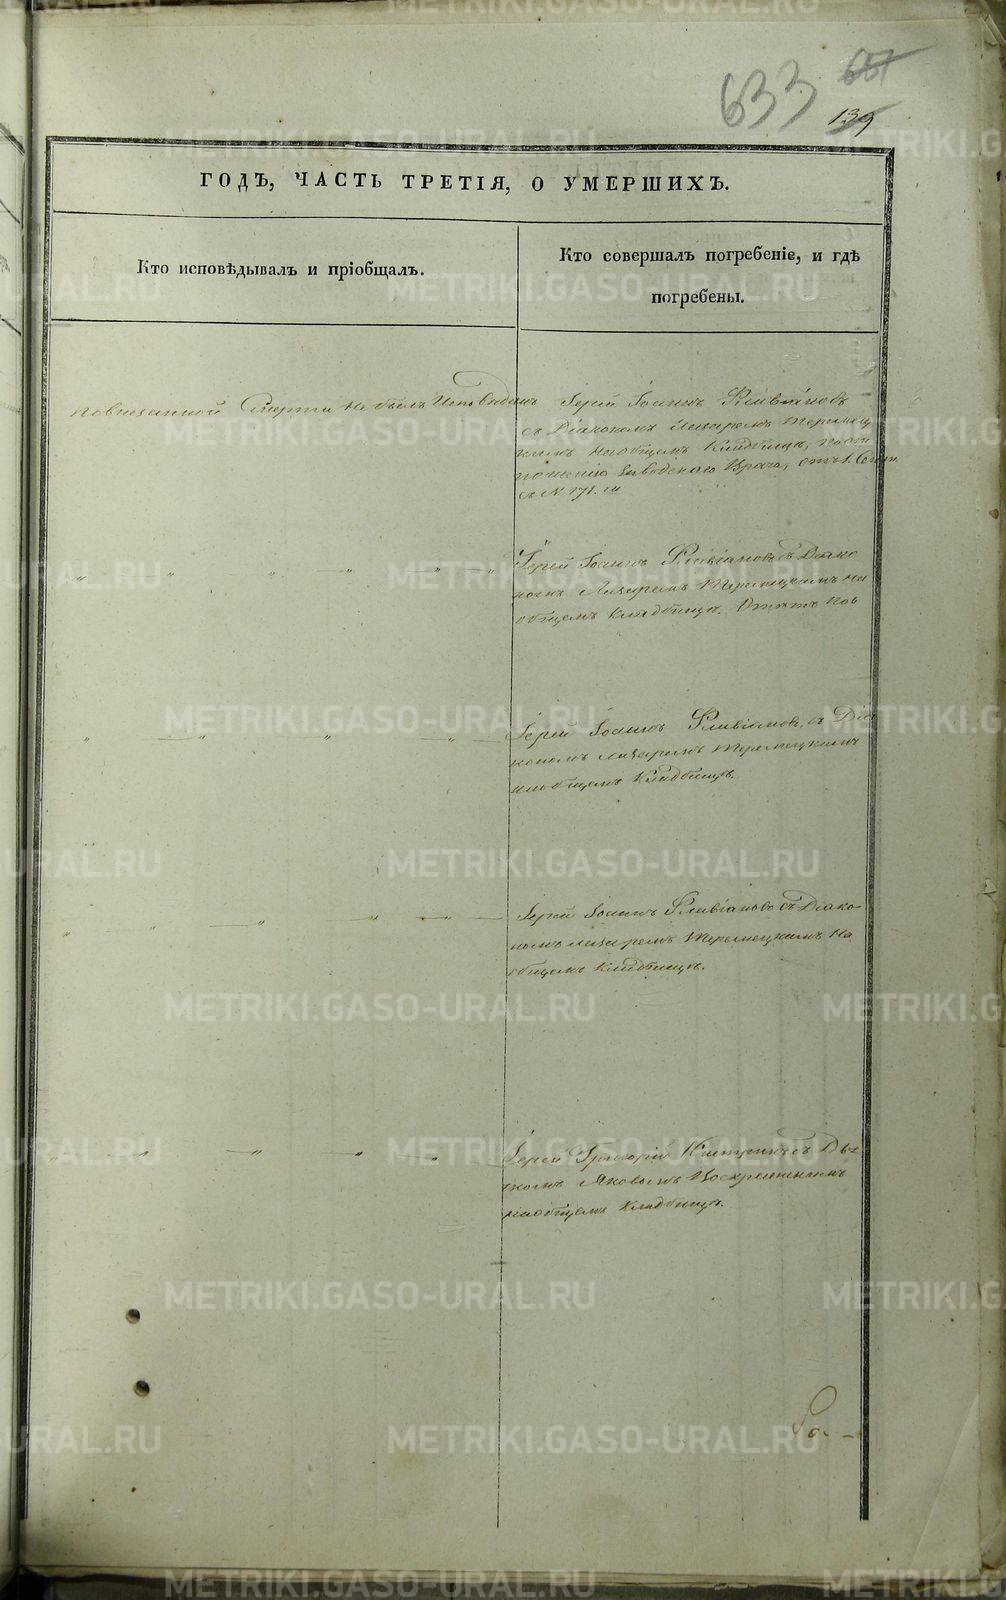 633 667
139
ГОДЪ, ЧАСТЬ ТРЕТІЯ, О УМЕРШИХЪ.
Кто исповѣдывалъ и пріобщалъ.
Кто совершалъ погребеніе, и гдѣ
погребены.
Смерти не былъ Исповѣданъ
Іерей Іоаннъ Флавіановъ
съ Діакономъ Лазаремъ
наобщемъ Кладбищѣ, поот
ношенію Заводскаго Врача, отъ 1. Сент.
за № 171. м
" " " " " —
Іерей Іоаннъ Флавіановъ съ Діако
номъ Лазаремъ Теремецкимъ на
общемъ Кладбищѣ.
" —"— " —"— —
Іерей Іоаннъ Флавіановъ, съ Діа
кономъ Лазаремъ Теремецкимъ
наобщемъ Кладбищѣ.
" " —"— " —"— —
Іерей Іоаннъ Флавіановъ съ Діако-
номъ Лазаремъ Теремецкимъ на
общемъ Кладбищѣ.
" " —"— —"— " —
Іерей Григорій съ Дья
чкомъ Яковомъ Воскресенскимъ
наобщемъ Кладбищѣ.
METRIKI.GASO-URAL.RU